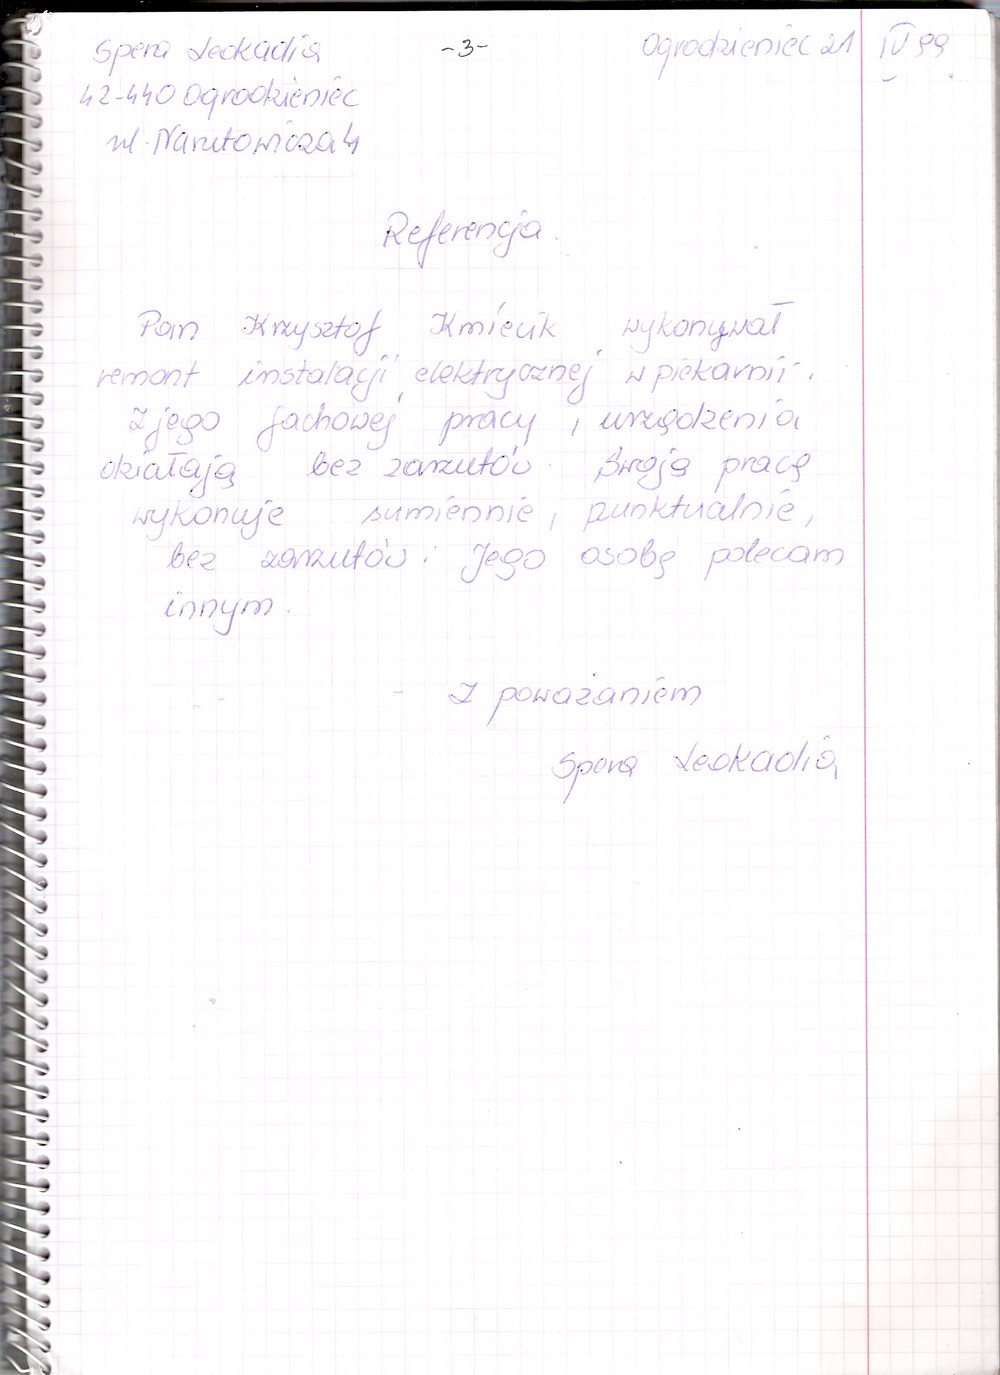 Spera Leokadia -3- Ogrodzieniec 21 IV 99
42-440 Ogrodzieniec
ul. Narutowicza 4
Referencja.
Pan Krzysztof Kmiecik wykonywał
remont instalacji elektrycznej w piekarnii.
Z jego fachowej pracy, urządzenia
działają bez zarzutów. Swoją pracę
wykonuje sumiennie, punktualnie,
bez zarzutów. Jego osobę polecam
innym.
Z poważaniem
Spera Leokadia